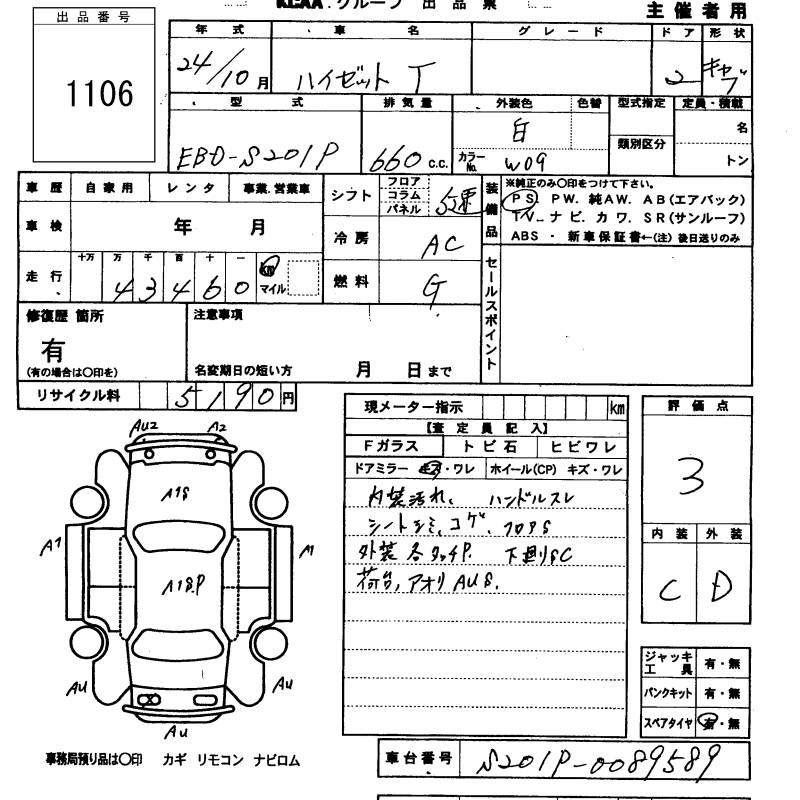 KCAA．グループ 出品票
主催者用
出品番号
1106
年式 車名 グレード ドア 形状
24/10月 ハイゼット T 2 キャブ
型式 排気量 外装色 色替 型式指定 定員・積載
EBD-S201P 660c.c. 白 類別区分 名
カラーNo. W09 トン
車歴 自家用 レンタ 事業.営業車
車検 年 月
走行 十万 万 千 百 十 一
43460 km マイル
シフト フロア コラム パネル 5速
冷房 AC
燃料 G
装備品 ※純正のみ〇印をつけて下さい。
PS. PW. 純AW. AB(エアバック)
TV. ナビ. カワ. SR(サンルーフ)
ABS ・ 新車保証書←(注) 後日送りのみ
セールスポイント
修復歴 箇所
有
(有の場合は〇印を)
注意事項
名変期日の短い方 月 日まで
リサイクル料 5190円
現メーター指示 km
【査定員記入】
Fガラス トビ石 ヒビワレ
ドアミラー ・ワレ ホイール(CP) キズ・ワレ
内装汚れ、 ハンドルスレ
シートシミ、コゲ、フロアS
外装各タッチP. 下廻りSC
荷台,アオリ AUS.
評価点
3
内装 外装
C D
ジャッキ工具 有・無
パンクキット 有・無
スペアタイヤ 有・無
AU2 A2
A1S
A1 A1
A1S.P
AU AU
AU
事務局預り品は〇印 カギ リモコン ナビロム
車台番号 S201P-0089589